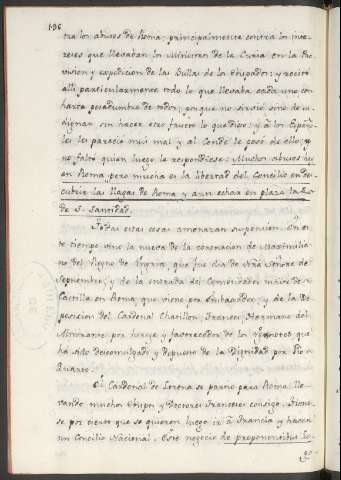 196
tra los abusos de Roma; principalmente contra los inte-
reses que llevaban los Ministros de la Curia en la Pro-
vision y expedicion de las Bullas de los Obispados; y recitó
alli particularmente todo lo que llevaba cada uno con
harta pesadumbre de todos; porque no sirvió sino de in-
dignar sin hacer otro fructo lo que dijo; y á los Españo-
les les pareció mui mal y al Conde le pesó de ello; y
no faltó quien luego le respondiese: Muchos abusos hai
en Roma pero mucha es la libertad del Concilio en des-
cubrir las llagas de Roma y aun echar en plaza las
de S. Santidad.
Todas estas cosas amenazan suspension. En es-
te tiempo vino la nueva de la coronacion de Maximilia-
no del Reyno de Ungria, que fue dia de ntra Señora de
Septiembre; y de la entrada del Comendador mayor de
Castilla en Roma que viene por Embaxador; y de la De-
posicion del Cardenal Chatillon Frances Hermano del
Almirante por herege y favorecedor de los Ugonotes que
ha sido descomulgado y depuesto de la Dignidad por Pio
Quarto.
El Cardenal de Lorena se partio para Roma lle-
vando muchos Obispos y Doctores Franceses consigo. Tiene-
se por cierto que se quieren luego ir á Francia y hacer
un Concilio Nacional. Este negocio de proponentibus Le-
ga-